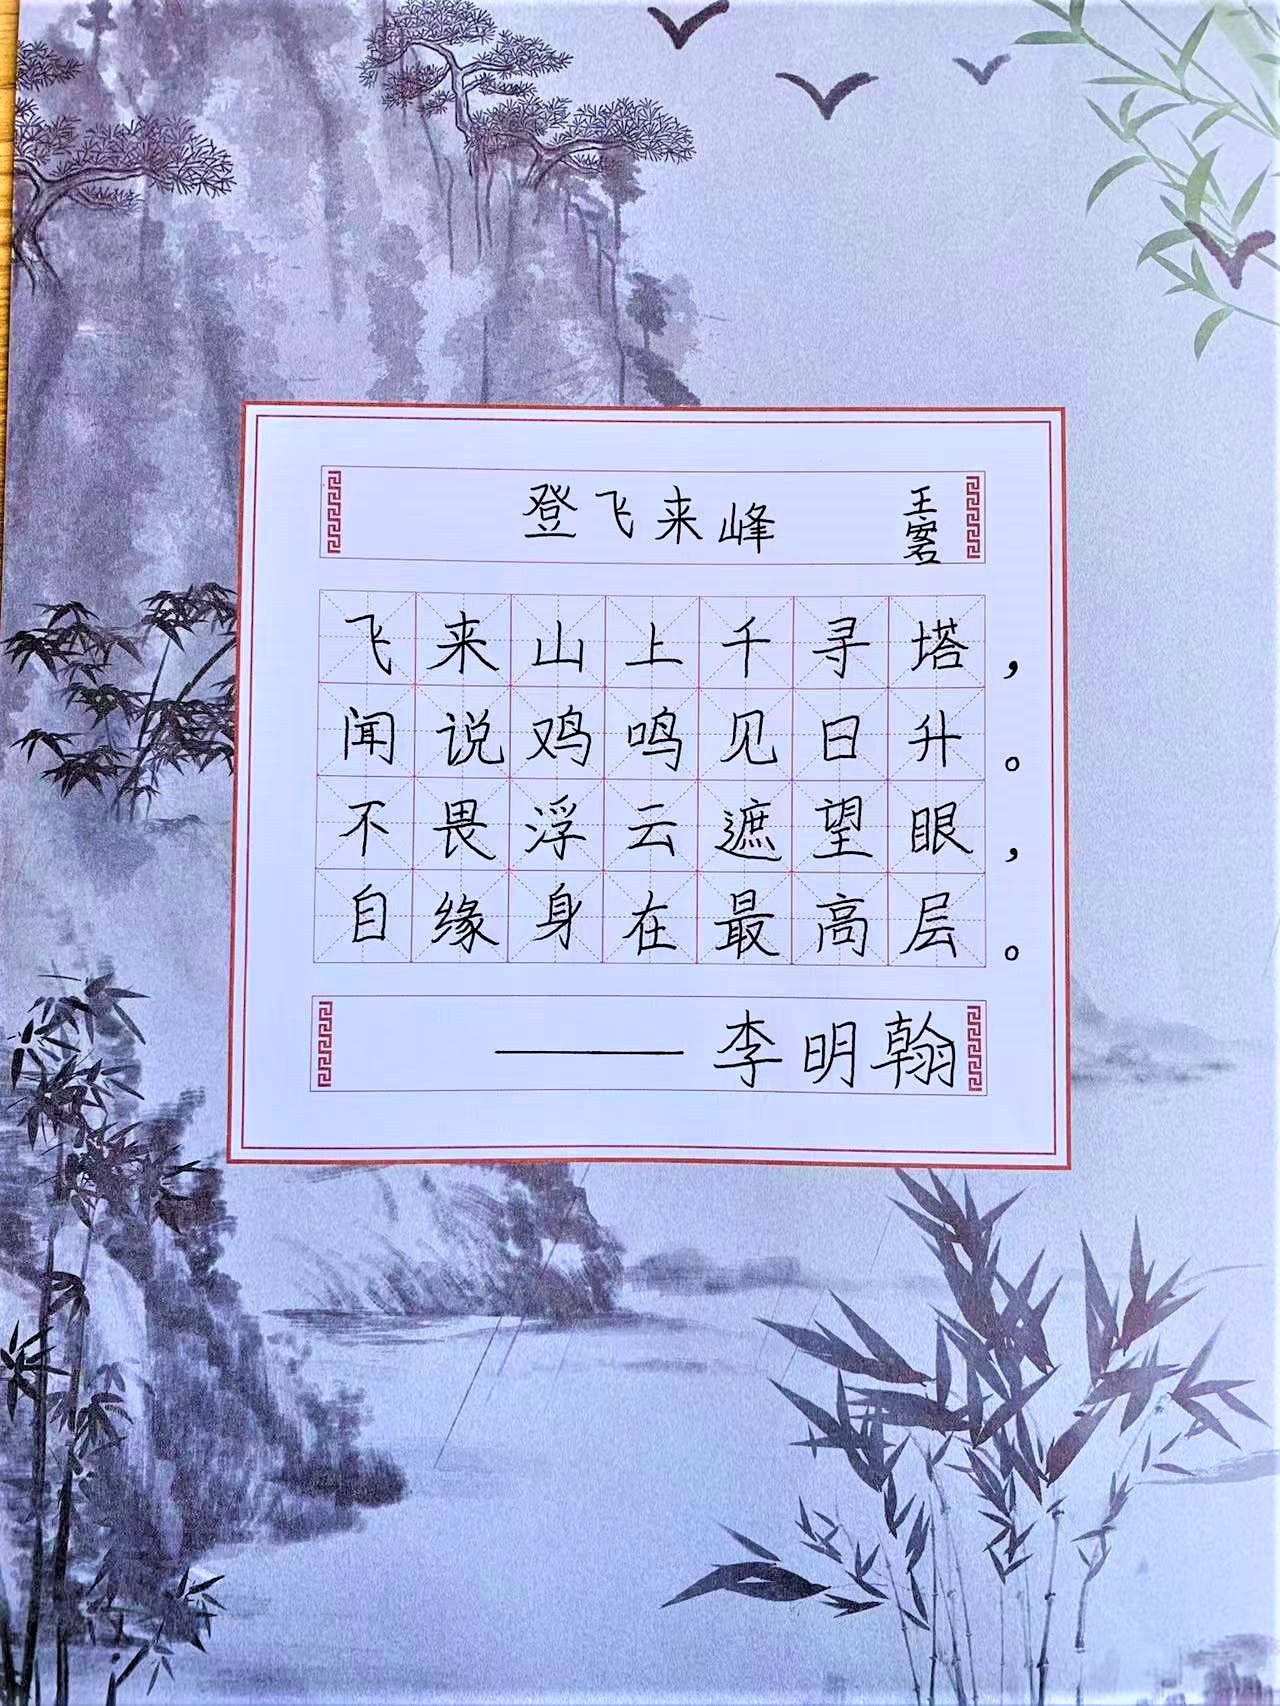 登飞来峰 王安石
飞来山上千寻塔，
闻说鸡鸣见日升。
不畏浮云遮望眼，
自缘身在最高层。
——李明翰